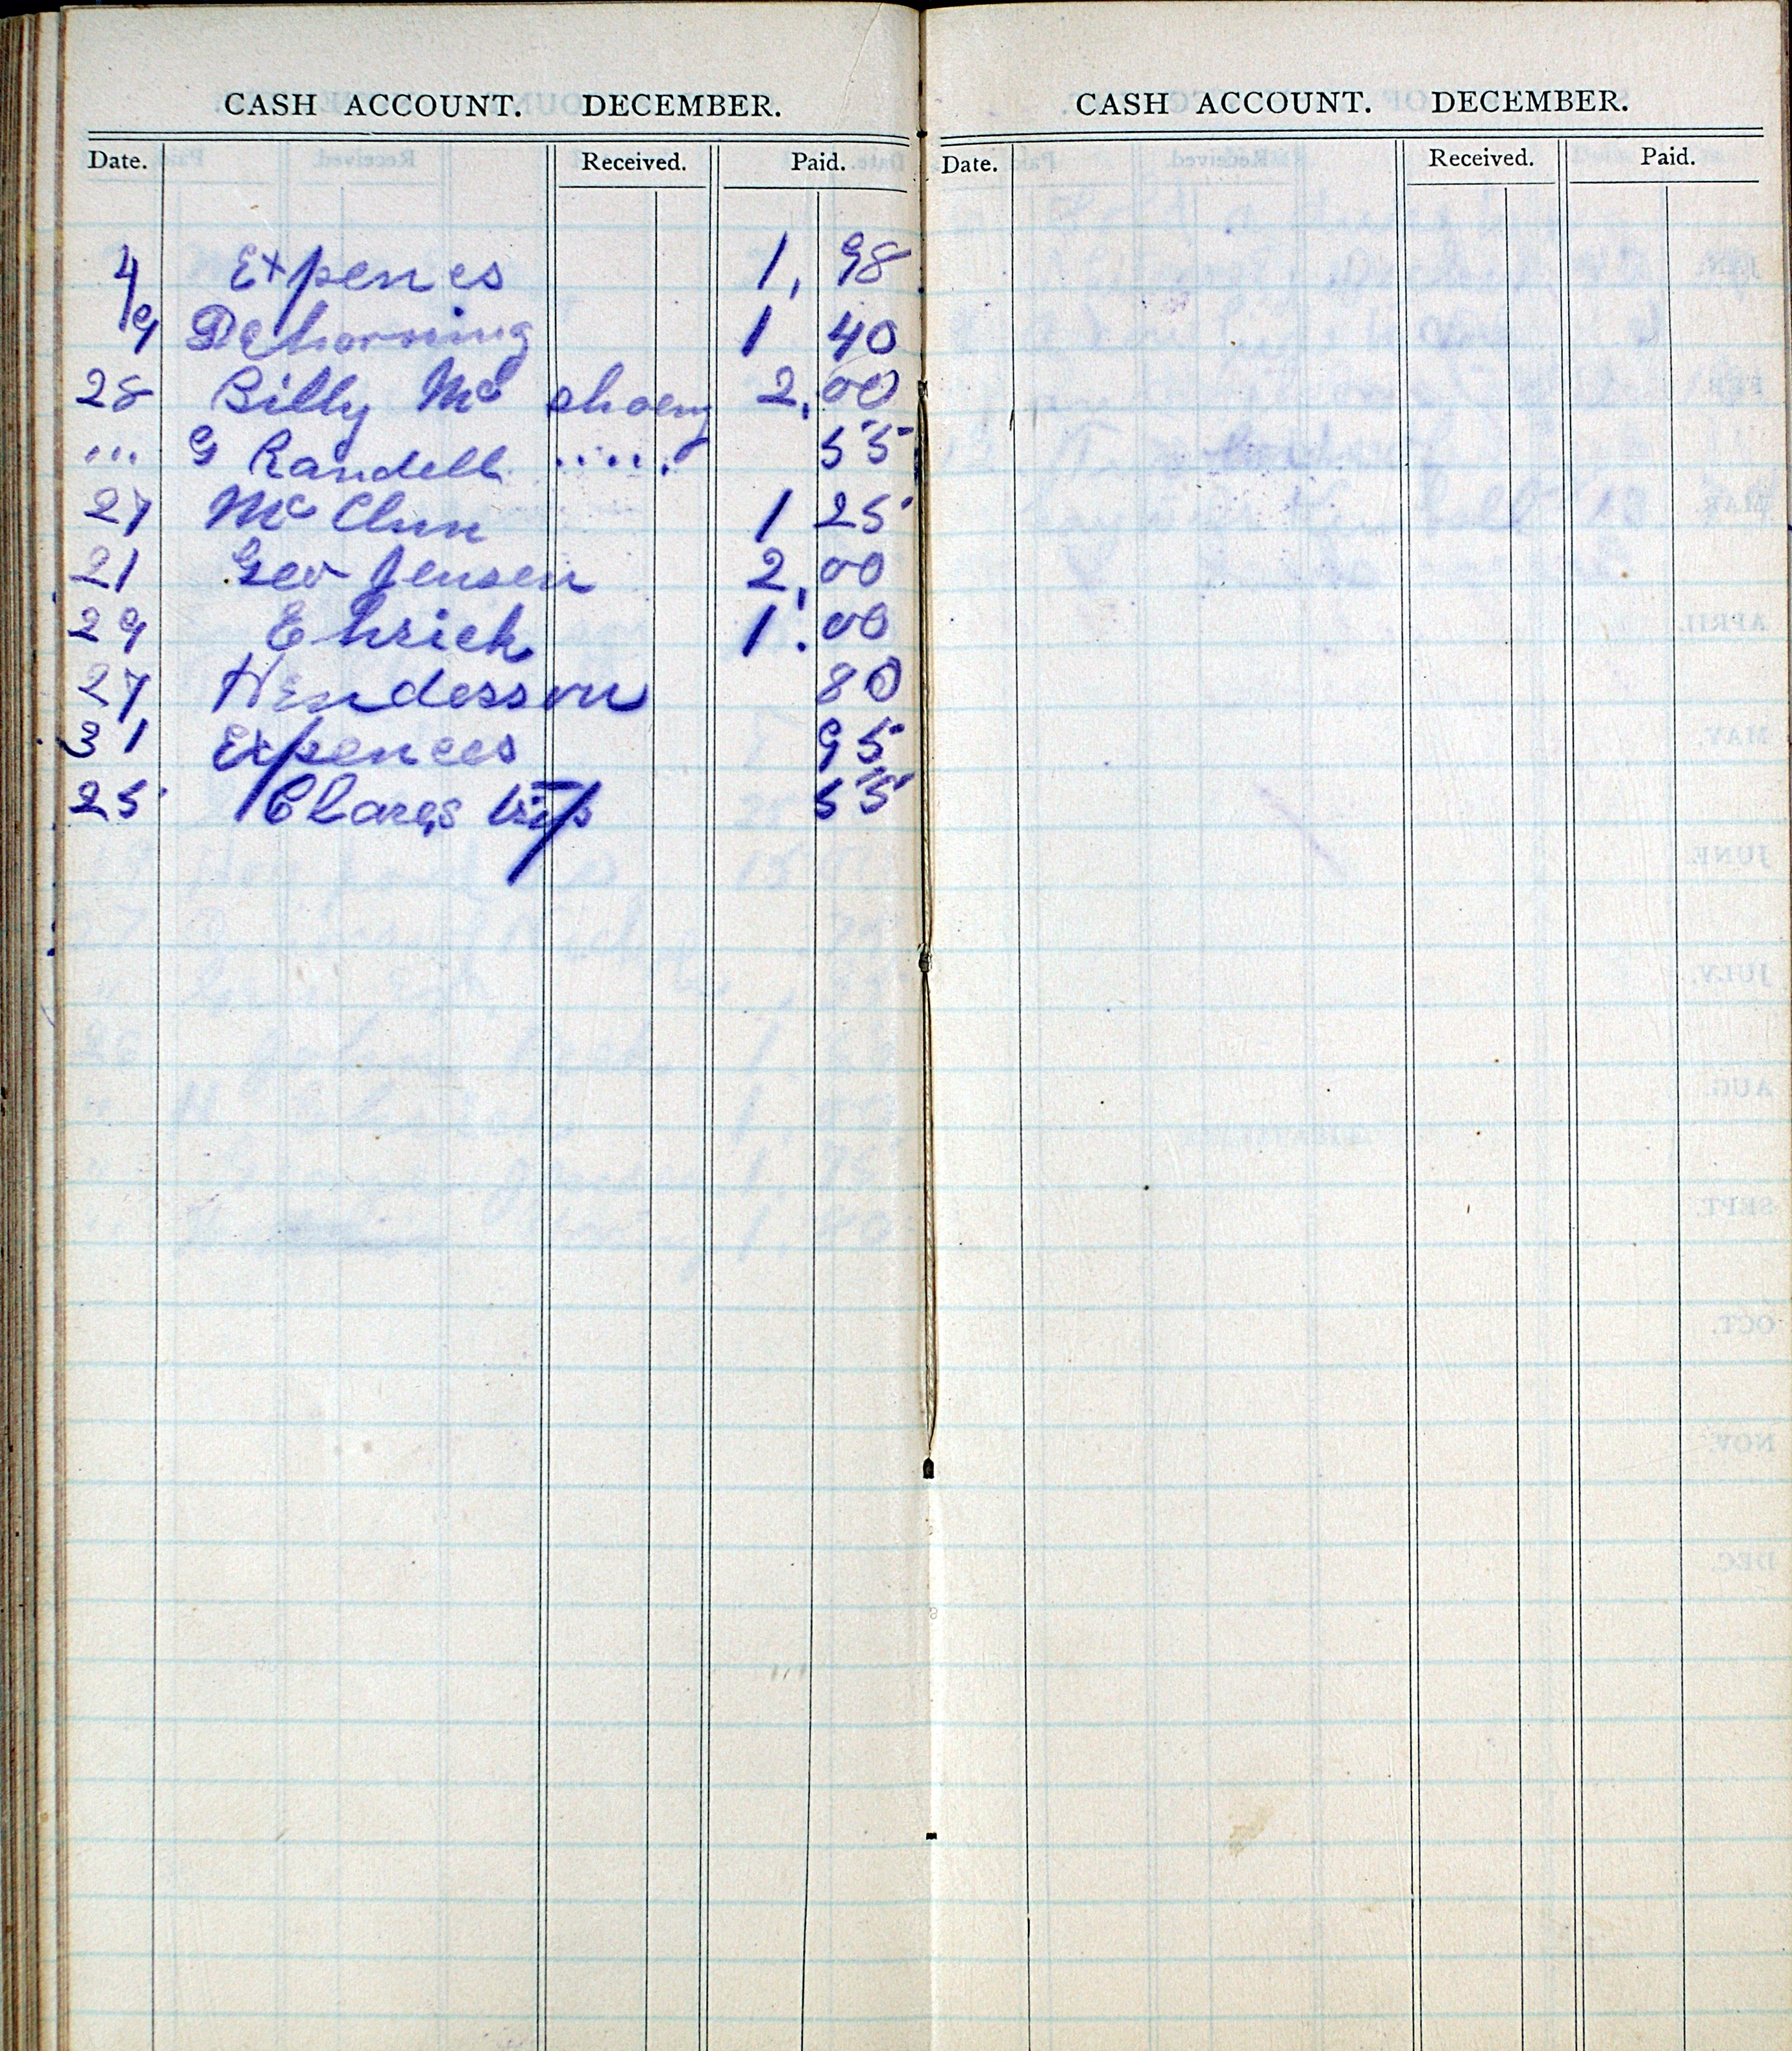 CASH ACCOUNT. DECEMBER.
Date. Received. Paid.
4 Expences 1, 98
9 Dehorning 1 40
28 Billy Mc shoeing 2, 00
... G Randell ..... 55
27 Mc Clun 1 25
21 Geo Jensen 2, 00
29 Ehrick 1. 00
27 Henderson 80
31 Expences 95
25 Clares trip 55
CASH ACCOUNT. DECEMBER.
Date. Received. Paid.